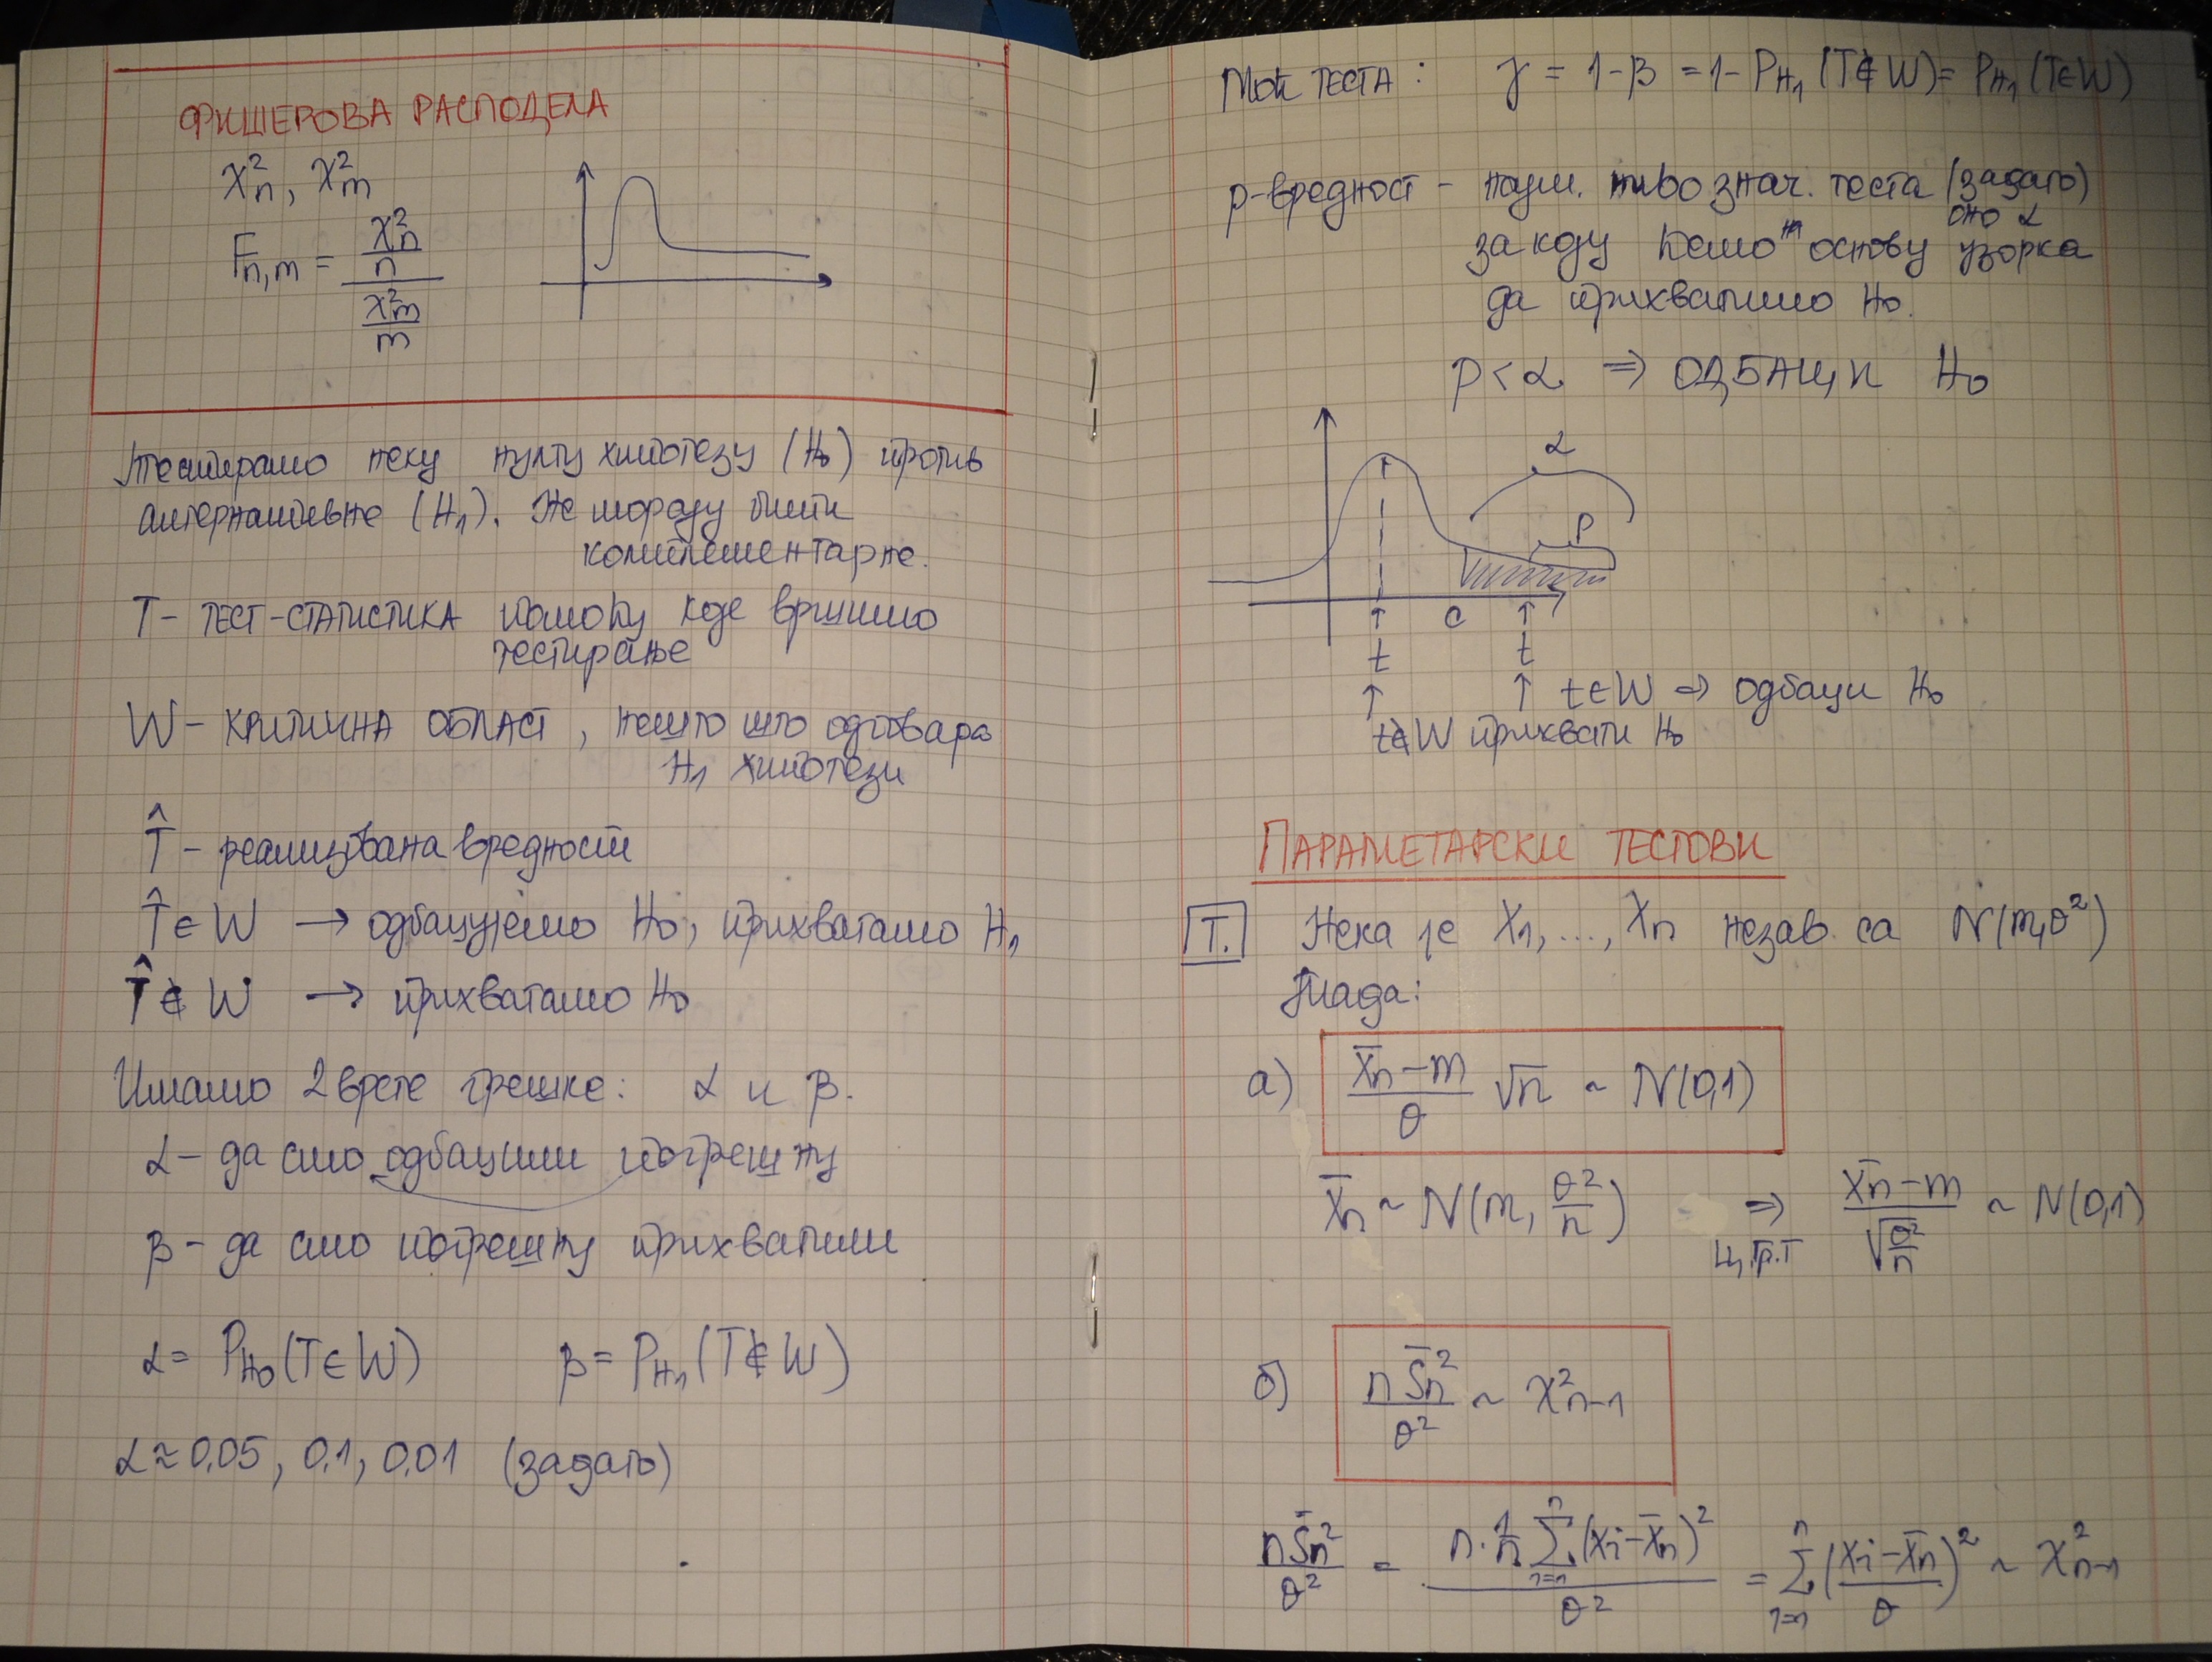 ФИШЕРОВА РАСПОДЕЛА
χ²ₙ, χ²ₘ
Fₙ,ₘ = (χ²ₙ/n) / (χ²ₘ/m)
Тестирамо неку нулту хипотезу (H₀) против
алтернативне (H₁). Не морају бити
комплементарне.
T – ТЕСТ-СТАТИСТИКА помоћу које вршимо
тестирање
W – КРИТИЧНА ОБЛАСТ, нешто што одговара
H₁ хипотези
T̂ – реализована вредност
T̂ ∈ W → одбацујемо H₀, прихватамо H₁
T̂ ∉ W → прихватамо H₀
Имамо 2 врсте грешке: α и β.
α – да смо одбацили погрешну
β – да смо погрешну прихватили
α = P_H₀(T ∈ W) β = P_H₁(T ∉ W)
α ≈ 0.05, 0.1, 0.01 (задато)
Моћ ТЕСТА: γ = 1-β = 1-P_H₁(T ∉ W) = P_H₁(T ∈ W)
p-вредност – најм. ниво знач. теста (задато)
оно α
за коју ћемо на основу узорка
да прихватимо H₀.
p < α ⇒ ОДБАЦИ H₀
α
p
c
t t
t ∈ W ⇒ одбаци H₀
t ∉ W прихвати H₀
ПАРАМЕТАРСКИ ТЕСТОВИ
Т. Нека је X₁, ..., Xₙ незав. са N(m, σ²)
Тада:
а) (X̄ₙ - m)/σ √n ~ N(0,1)
X̄ₙ ~ N(m, σ²/n) ⇒ (X̄ₙ - m)/√(σ²/n) ~ N(0,1)
Ц.Гр.Т
б) nS̄ₙ²/σ² ~ χ²ₙ₋₁
nS̄ₙ²/σ² = (n · 1/n Σ(Xᵢ - X̄ₙ)²)/σ² = Σ((Xᵢ - X̄ₙ)/σ)² ~ χ²ₙ₋₁